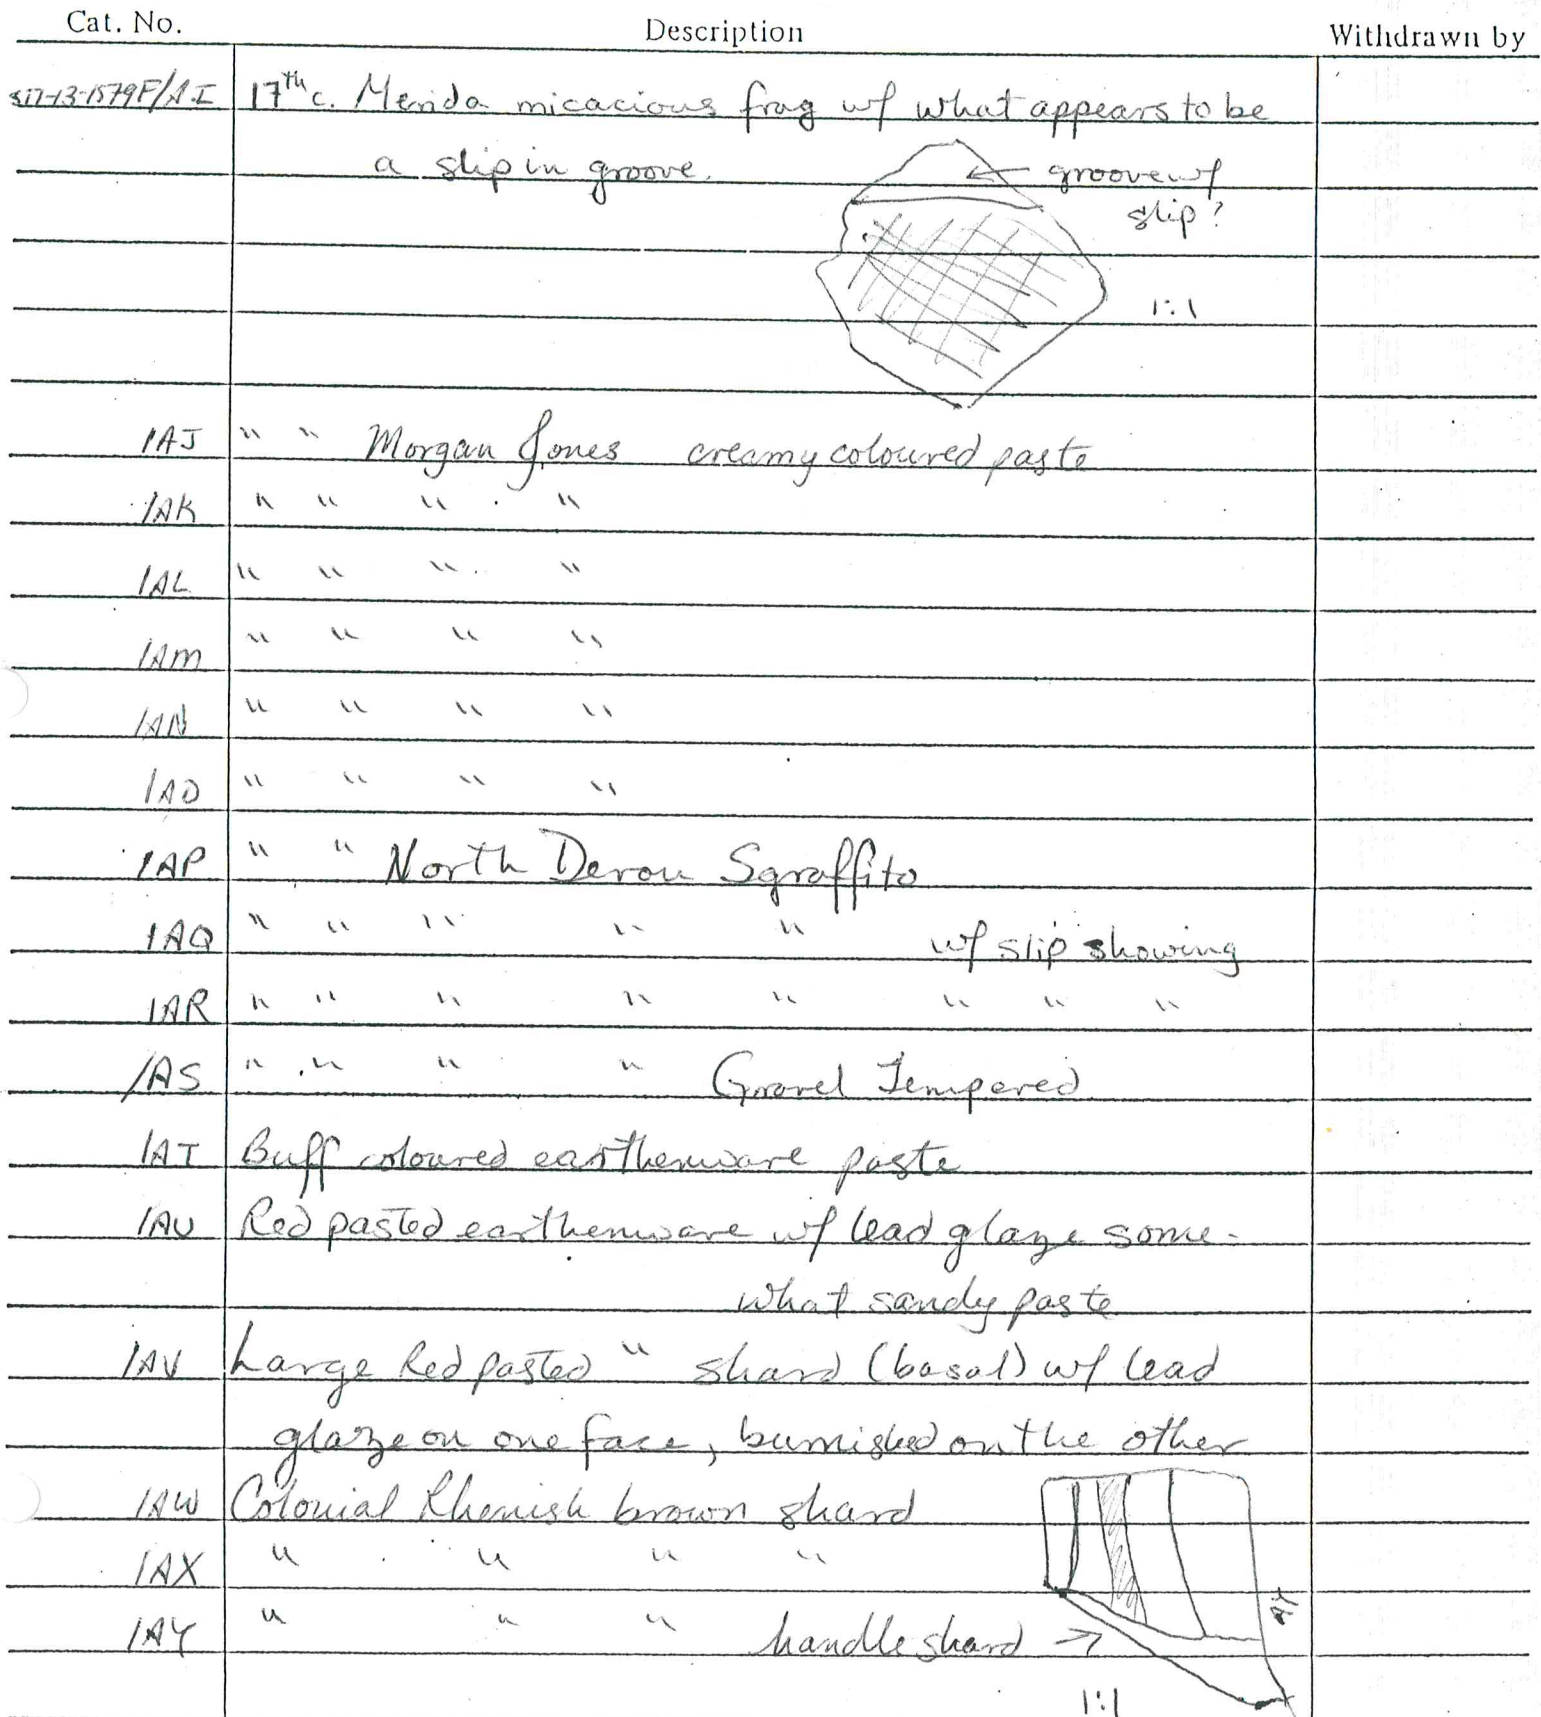 Cat. No. Description Withdrawn by
/AI 17th c. Merida micacious frag w/ what appears to be
a slip in groove.
← groove w/
slip?
1:1
/AJ " " Morgan Jones creamy coloured paste
/AK " " " "
/AL " " " "
/AM " " " "
/AN " " " "
/AO " " " "
/AP " " North Devon Sgraffito
/AQ " " " " " w/ slip showing
/AR " " " " " " " "
/AS " " " " Gravel Tempered
/AT Buff coloured earthenware paste
/AU Red pasted earthenware w/ lead glaze some-
what sandy paste
/AV Large Red pasted " shard (basal) w/ lead
glaze on one face, burnished on the other
/AW Colonial Rhenish brown shard
/AX " " " "
/AY " " " handle shard →
1:1